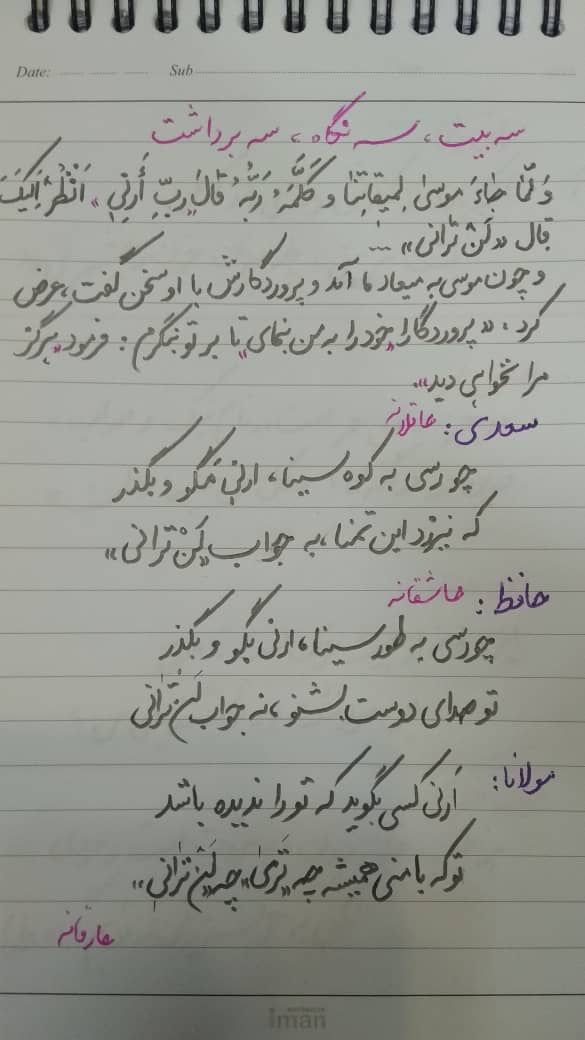 Date: Sub
سه بیت، سه نگاه، سه برداشت
وَ لَمّا جٰاءَ موسیٰ لِمیقاتِنا و کَلَّمَهُ رَبُّهُ قالَ رَبِّ أَرنِی «اَنْظُرْ اِلَیکَ
قال «لَنْ تَرانی» ...
و چون موسی به میعاد ما آمد و پروردگارش با او سخن گفت، عرض
کرد: «پروردگارا خود را به من بنمای تا بر تو بنگرم: فرمود «هرگز
مرا نخواهی دید».
سعدی: عاقلانه
چو رسی به کوه سینا، ارنی مَگو و بگذر
که نیرزد این تمنا، به جواب «لَنْ تَرانی»
حافظ: عاشقانه
چو رسی به طور سینا، ارنی بگو و بگذر
تو صدای دوست بشنو، نه جواب لَنْ تَرانی
مولانا:
اَرنی کسی بگوید که تو را ندیده باشد
تو که با منی همیشه چه «تَریٰ» چه «لَنْ تَرانی»
عارفانه
iman